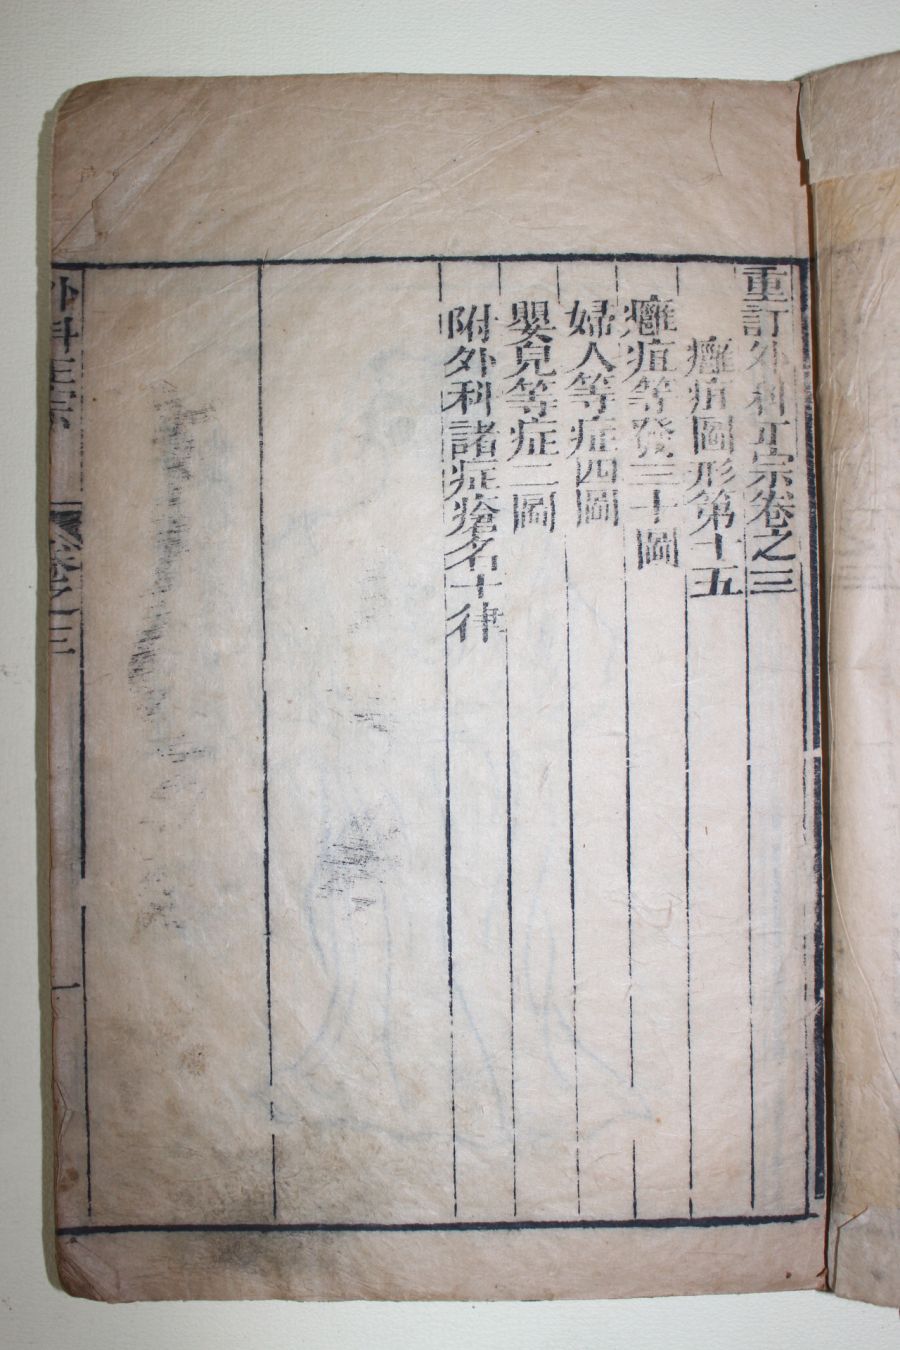 重訂外科正宗卷之三
癰疽圖形第十五
癰疽等發三十圖
婦人等症四圖
嬰兒等症二圖
附外科諸症瘡名十律
外科正宗
卷之三
一